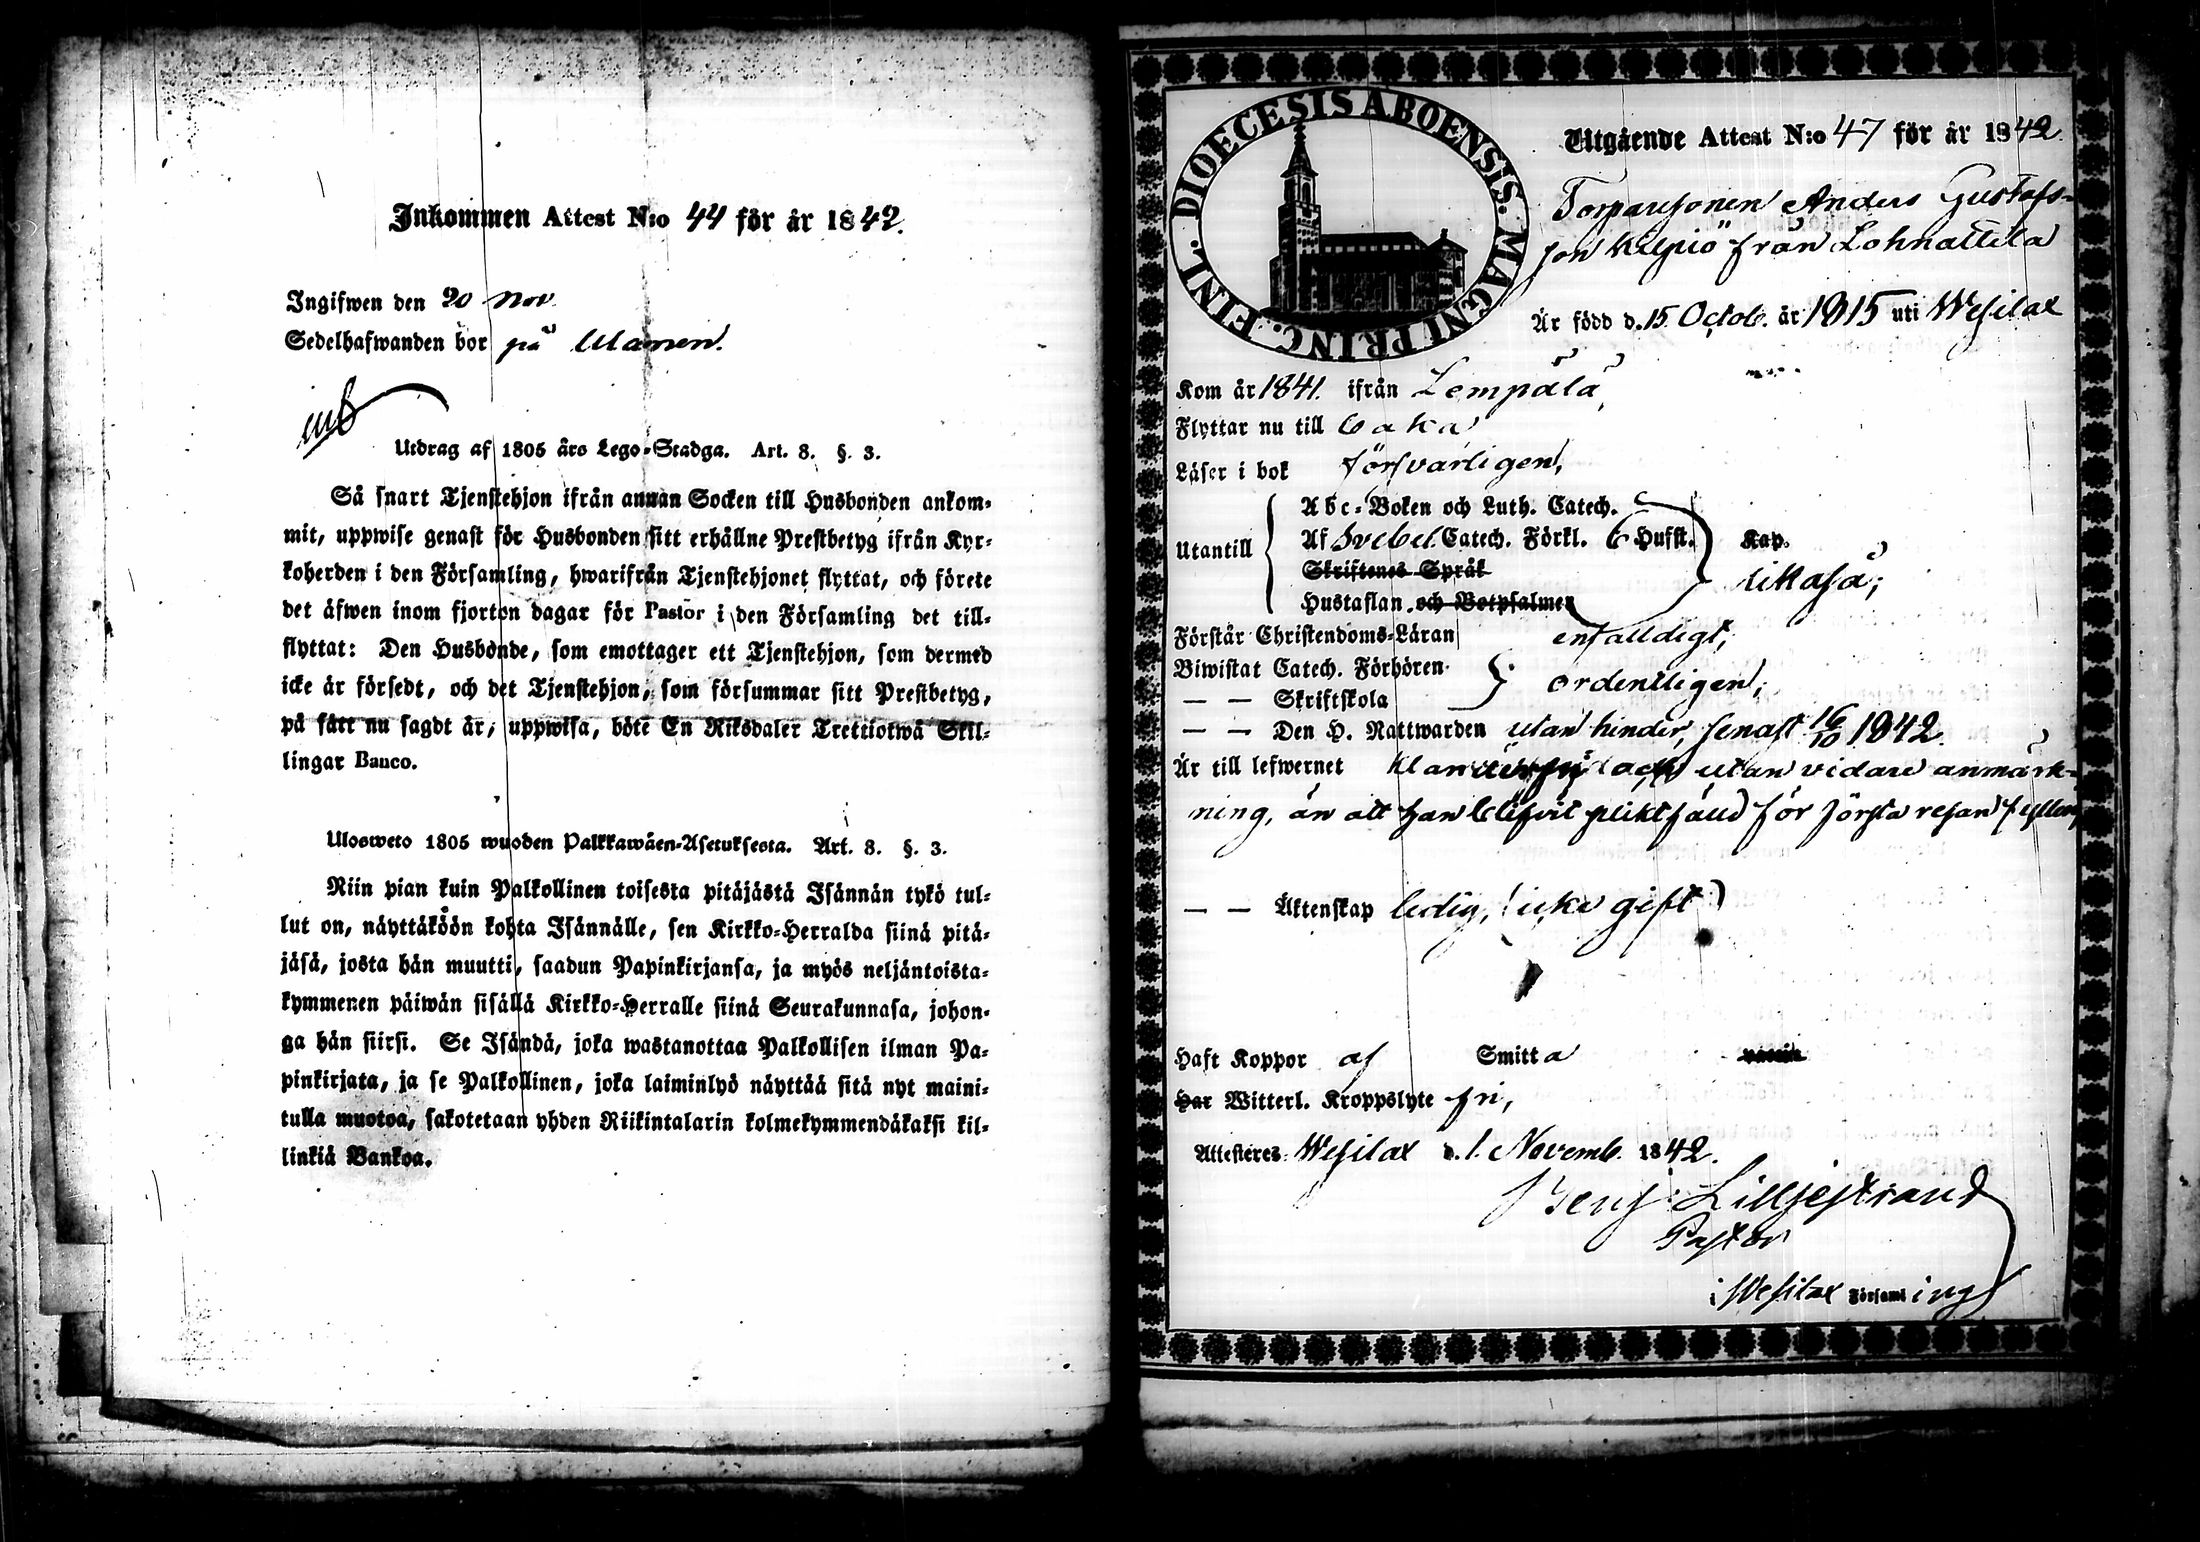 Inkommen Attest N:o 44 för år 1842.
Ingifwen den 20 Nov.
Sedelhafwanden bor på
Utdrag af 1805 års Lego-Stadga. Art. 8. §. 3.
Så snart Tjenstehjon ifrån annan Socken till Husbonden ankom-
mit, uppwise genast för Husbonden sitt erhållne Prestbetyg ifrån Kyr-
koherden i den Församling, hwarifrån Tjenstehjonet flyttat, och förete
det äfwen inom fjorton dagar för Pastor i den Församling det till-
flyttat: Den Husbonde, som emottager ett Tjenstehjon, som dermed
icke är försedt, och det Tjenstehjon, som försummar sitt Prestbetyg,
på sätt nu sagdt är, uppwisa, böte En Riksdaler Trettiotwå Skil-
lingar Banco.
Ulosweto 1805 wuoden Palkkawäen-Asetuksesta. Art. 8. §. 3.
Niin pian kuin Palkollinen toisesta pitäjästä Isännän tykö tul-
lut on, näyttäköön kohta Isännälle, sen Kirkko-Herralda siinä pitä-
jäsä, josta hän muutti, saadun Papinkirjansa, ja myös neljäntoista-
kymmenen päiwän sisällä Kirkko-Herralle siinä Seurakunnasa, johon-
ga hän siirsi. Se Isändä, joka wastanottaa Palkollisen ilman Pa-
pinkirjata, ja se Palkollinen, joka laiminlyö näyttää sitä nyt maini-
tulla muotoa, sakotetaan yhden Riikintalarin kolmekymmendäkaksi kil-
linkiä Bankoa.
DIOECESIS ABOENSIS. MAGNI PRINC. FINL.
Utgående Attest N:o 47 för år 1842.
Torparesonen Anders Gustafs-
son Kilpiö från Lohnattila
Är född d. 15 Octob. år 1815 uti Wesilax
Kom år 1841. ifrån Lempälä,
Flyttar nu till Caka
Läser i bok försvarligen,
Abc-Boken och Luth. Catech.
Utantill Af Svebel. Catech. Förkl. 6 Hufst. Kap.
Skriftenes Språk likaså;
Hustaflan och Botpsalmer
Förstår Christendoms-Läran enfalldigt;
Biwistat Catech. Förhören
— — Skriftskola ordentligen;
— — Den H. Nattwarden utan hinder, senast 16/10 1842.
Är till lefwernet utan vidare anmärk-
ning, än att han blifvit pliktfälld för första resan fylleri,
— — Äktenskap ledig, (icke gift)
Haft Koppor af Smitta
Har Witterl. Kroppslyte fri,
Attesteres Wesilax d. 1. Novemb. 1842.
Benj: Lilljestrand
Pastor
i Wesilax Församling